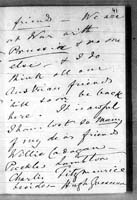 41
friends - We are
at War with
Prussia & no one
else - & I do
think all our
Austrian friends
till soon be back
here. It is awful
I have lost so many
of my dear friends
Willie Cadogan -
Hamilton
Charlie Fitzmaurice
besides Hugh